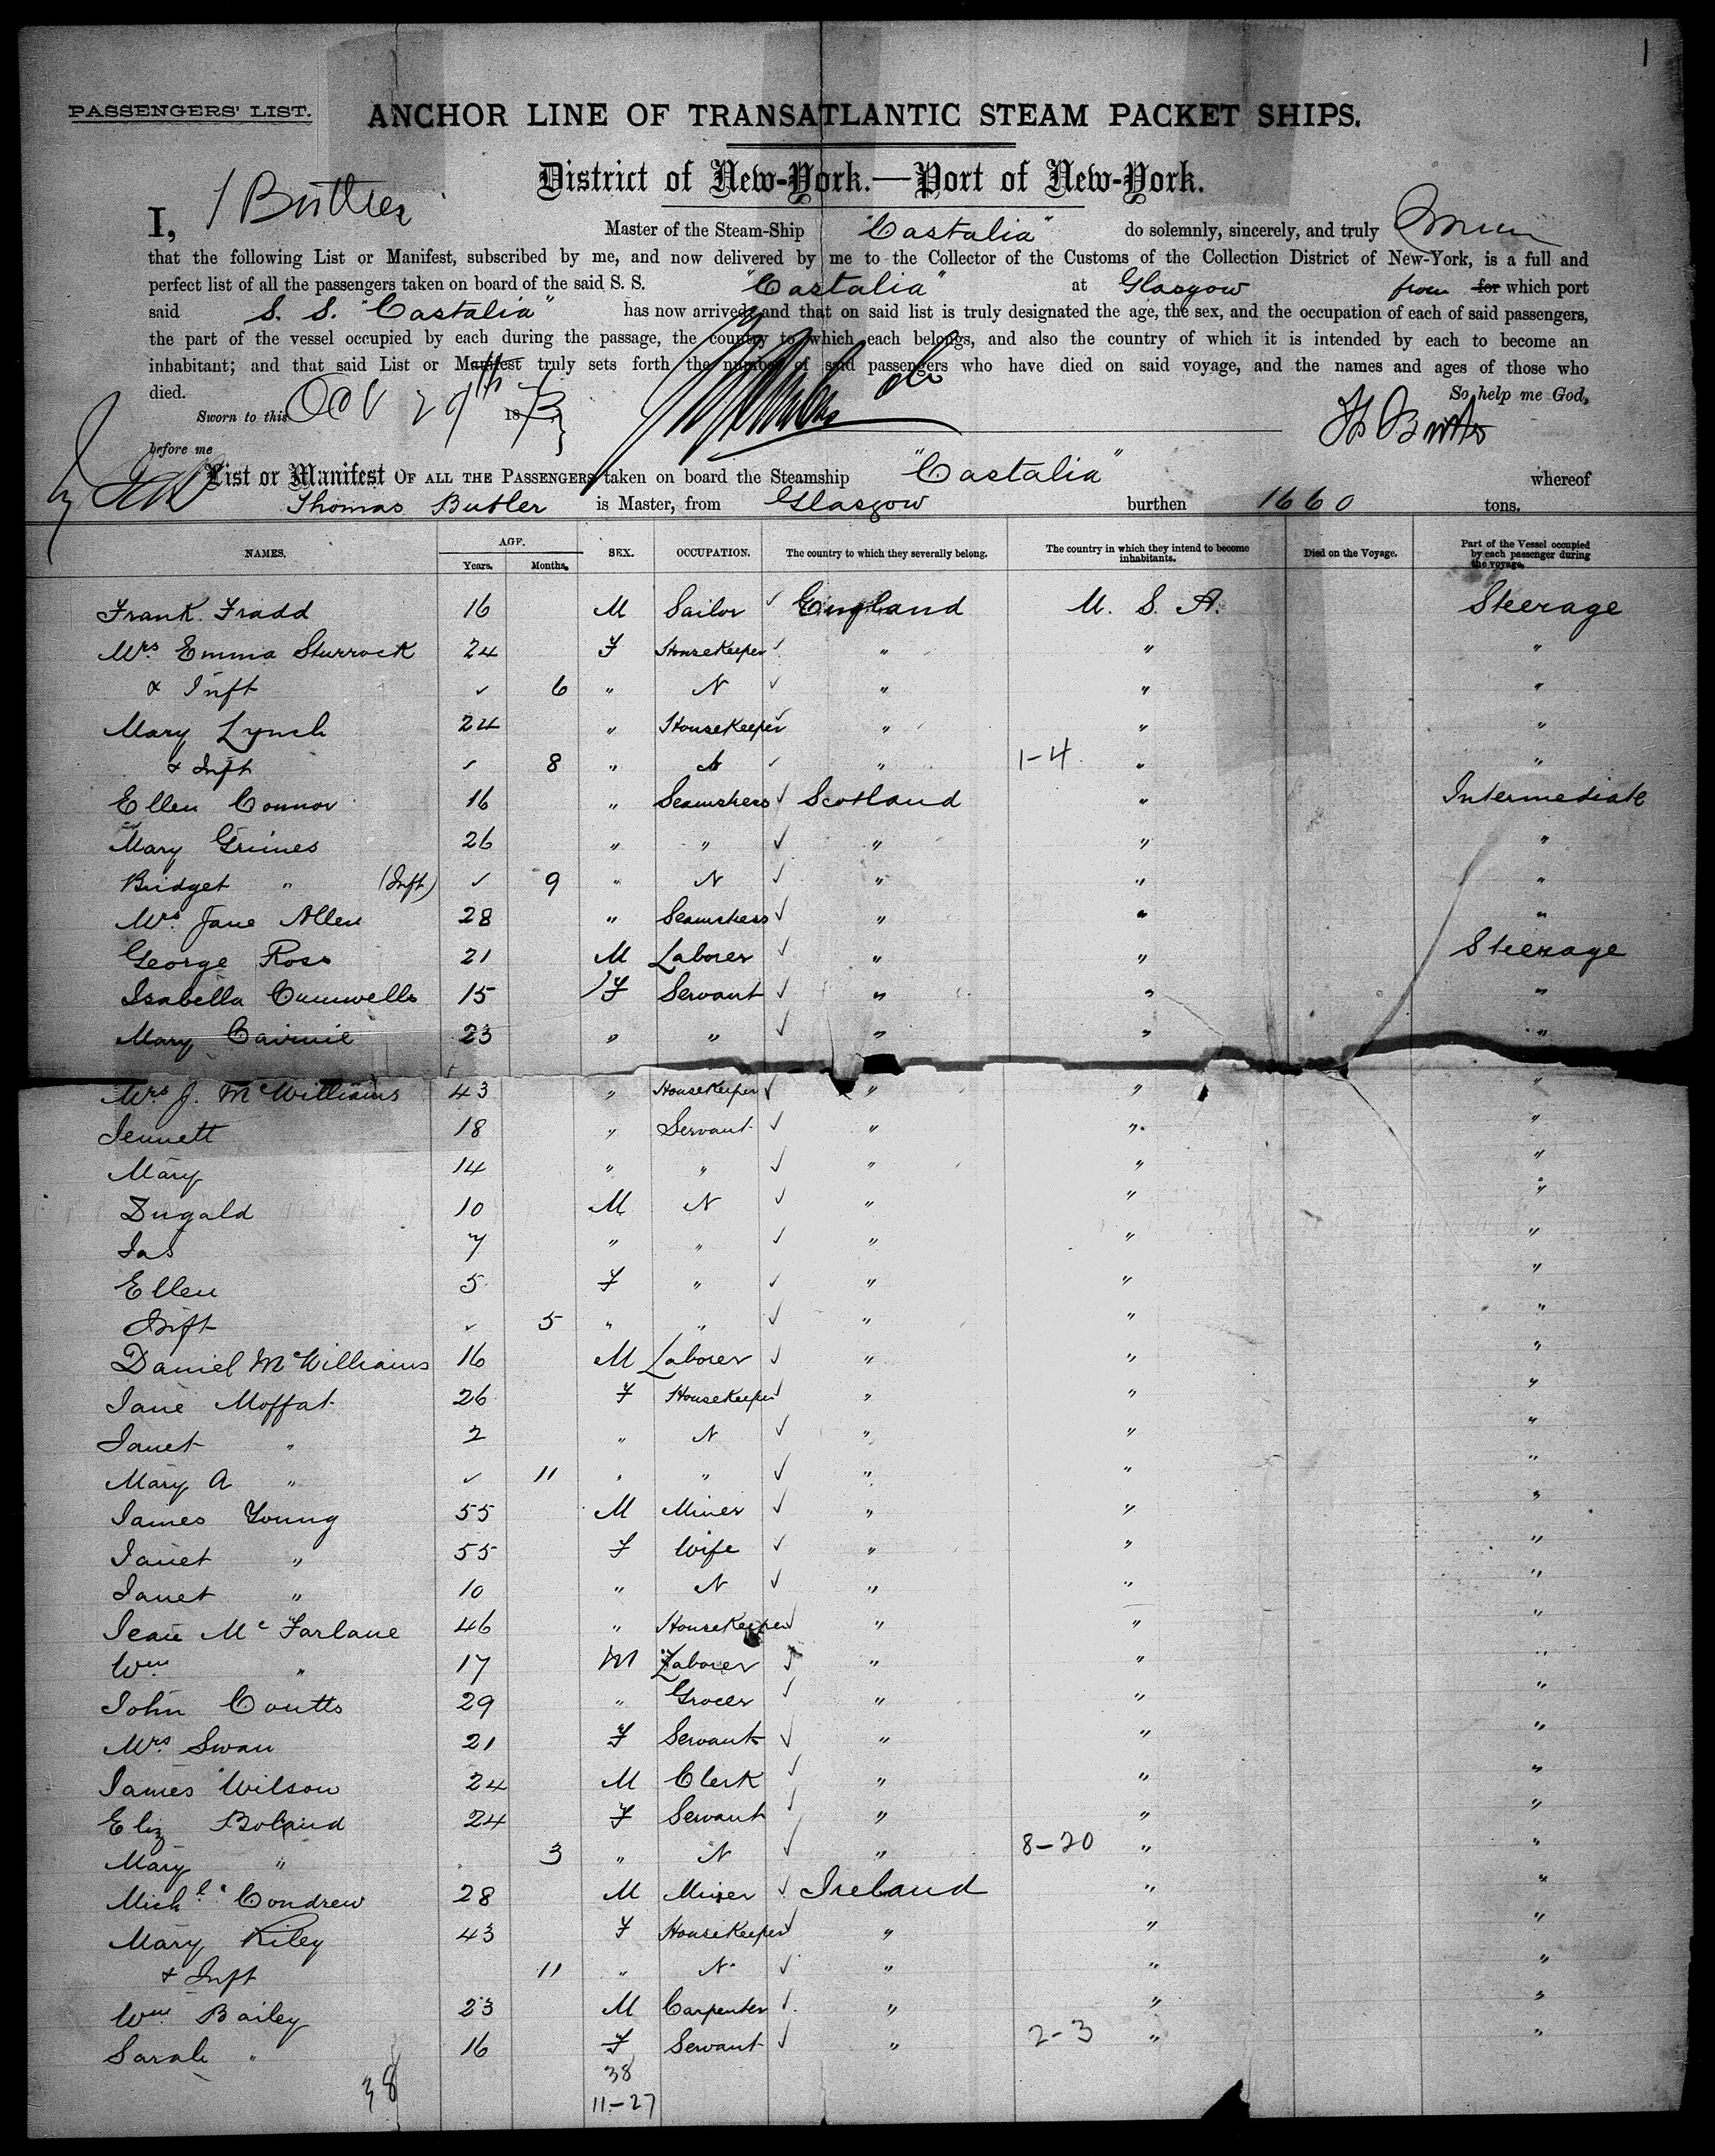 1
PASSENGERS' LIST. ANCHOR LINE OF TRANSATLANTIC STEAM PACKET SHIPS.
District of New-York.—Port of New-York.
I, Butler Master of the Steam-Ship "Castalia" do solemnly, sincerely, and truly
that the following List or Manifest, subscribed by me, and now delivered by me to the Collector of the Customs of the Collection District of New-York, is a full and
perfect list of all the passengers taken on board of the said S. S. "Castalia" at Glasgow from for which port
said S. S. "Castalia" has now arrived; and that on said list is truly designated the age, the sex, and the occupation of each of said passengers,
the part of the vessel occupied by each during the passage, the country to which each belongs, and also the country of which it is intended by each to become an
inhabitant; and that said List or Manifest truly sets forth the number of said passengers who have died on said voyage, and the names and ages of those who
died. So help me God,
Sworn to this Oct 29th 1873
before me
List or Manifest OF ALL THE PASSENGERS taken on board the Steamship "Castalia" whereof
Thomas Butler is Master, from Glasgow burthen 1660 tons.
NAMES. AGE. Years. Months. SEX. OCCUPATION. The country to which they severally belong. The country in which they intend to become inhabitants. Died on the Voyage. Part of the Vessel occupied by each passenger during the voyage.
Frank Fradd 16 M Sailor ✓ England U. S. A. Steerage
Mrs Emma Sturrock 24 F Housekeeper ✓ " " "
& Inft ✓ 6 " N ✓ " " "
Mary Lynch 24 " Housekeeper ✓ " " "
& Inft ✓ 8 " N ✓ " 1-4 " "
Ellen Connor 16 " Seamstress ✓ Scotland " Intermediate
Mary Grimes 26 " " ✓ " " "
Bridget " (Inft) ✓ 9 " N ✓ " " "
Mrs Jane Allen 28 " Seamstress ✓ " " "
George Ross 21 M Laborer ✓ " " Steerage
Isabella Cumwells 15 F Servant ✓ " " "
Mary Cairnie 23 " " ✓ " " "
Mrs J. McWilliams 43 " Housekeeper ✓ " " "
Jennett 18 " Servant ✓ " " "
Mary 14 " " ✓ " " "
Dugald 10 M N ✓ " " "
Jas 7 " " ✓ " " "
Ellen 5 F " ✓ " " "
Inft ✓ 5 " " ✓ " " "
Daniel McWilliams 16 M Laborer ✓ " " "
Jane Moffat 26 F Housekeeper ✓ " " "
Janet " 2 " N ✓ " " "
Mary A " ✓ 11 " " ✓ " " "
James Young 55 M Miner ✓ " " "
Janet " 55 F Wife ✓ " " "
Janet " 10 " N ✓ " " "
Jean McFarlane 46 " Housekeeper ✓ " " "
Wm " 17 M Laborer ✓ " " "
John Coutts 29 " Grocer ✓ " " "
Mrs Swan 21 F Servant ✓ " " "
James Wilson 24 M Clerk ✓ " " "
Eliz Boland 24 F Servant ✓ " " "
Mary " 3 " N ✓ " 8-20 " "
Michl Condrew 28 M Miner ✓ Ireland " "
Mary Riley 43 F Housekeeper ✓ " " "
& Inft 11 " N ✓ " " "
Wm Bailey 23 M Carpenter ✓ " " "
Sarah " 16 F Servant ✓ " 2-3 " "
38 38
11-27